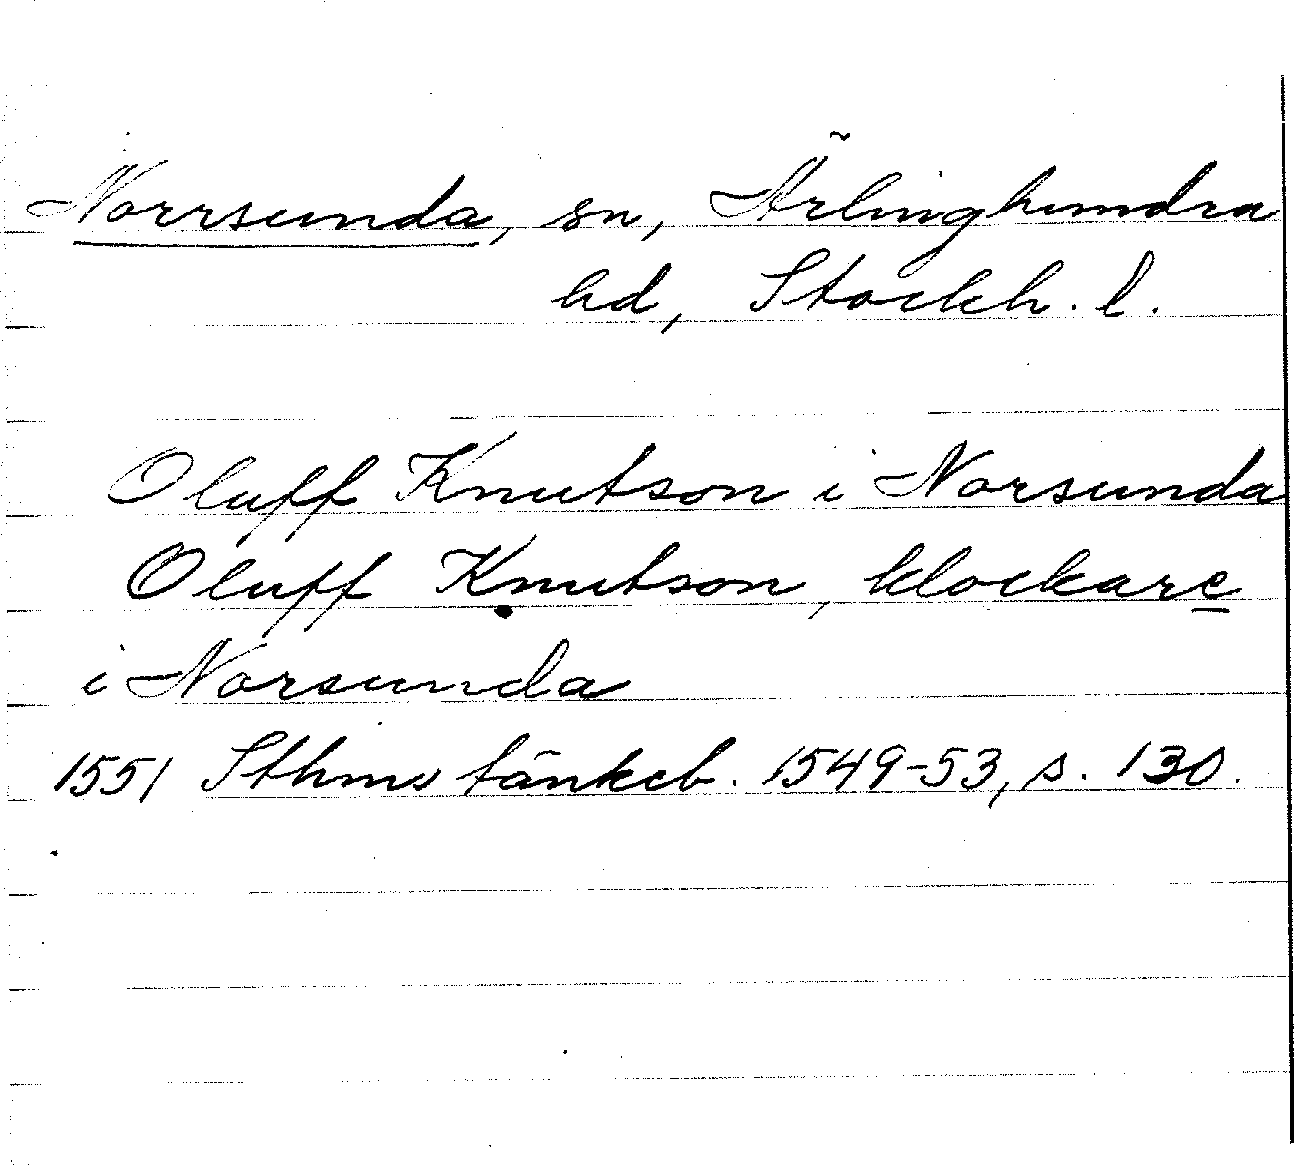 Norrsunda, sn, Ärlinghundra
hd, Stockh. l.
Oluff Knutson i Norsunda
Oluff Knutson, klockare
i Norsunda
1551 Sthms tänkeb. 1549-53, s. 130.